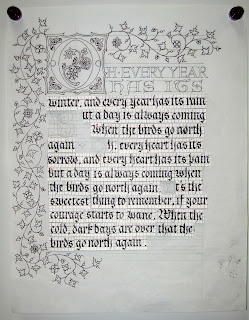 OH, EVERY YEAR
HAS ITS
winter, and every year has its rain
ut a day is always coming
When the birds go north
again h, every heart has its
sorrow, and every heart has its pain
but a day is always coming when
the birds go north again t's the
sweetest thing to remember, if your
courage starts to wane, When the
cold, dark days are over that the
birds go north again.